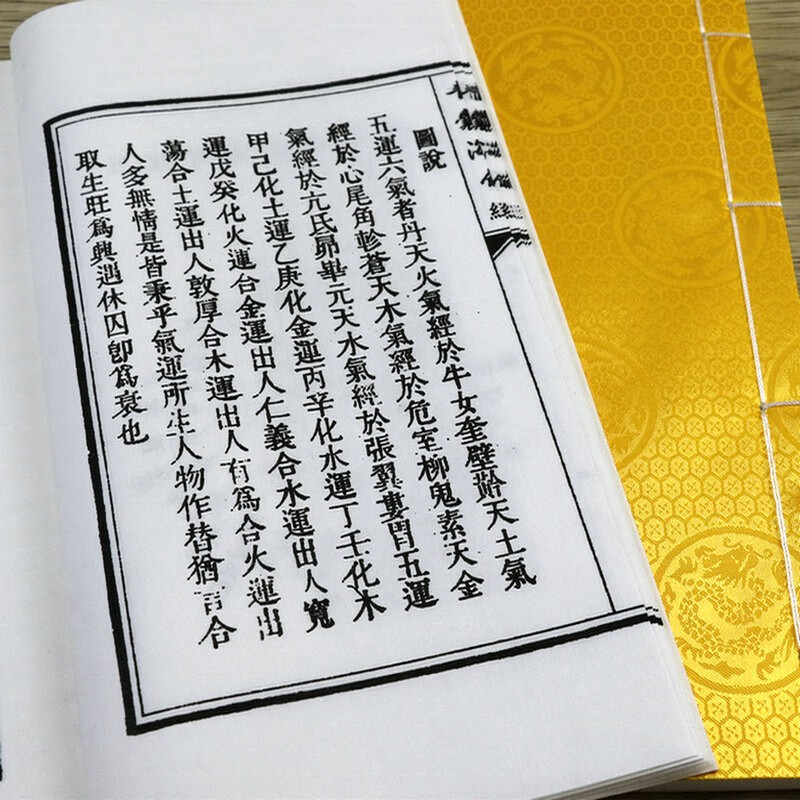 圖說
五運六氣者丹天火氣經於牛女奎壁黅天土氣
經於心尾角軫蒼天木氣經於危室柳鬼素天金
氣經於亢氐昴畢元天水氣經於張翼婁胃五運
甲己化土運乙庚化金運丙辛化水運丁壬化木
運戊癸化火運合金運出人仁義合水運出人寬
蕩合土運出人敦厚合木運出人有為合火運出
人多無情是皆秉乎氣運所生人物作替猶言合
取生旺為興遇休囚卽為衰也